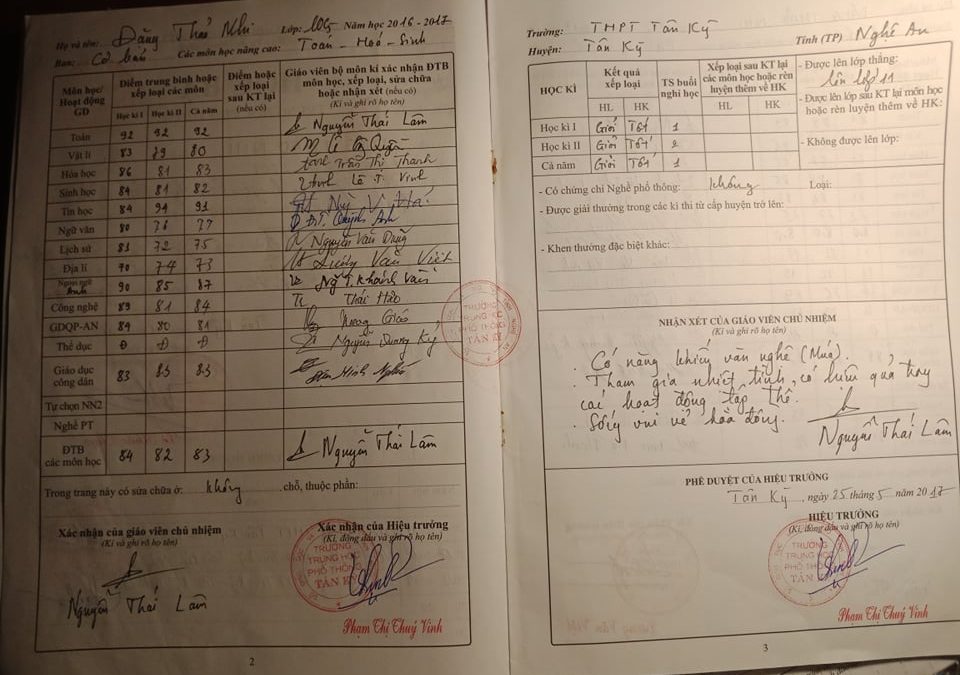 Họ và tên: Đặng Thảo Nhi Lớp: 10C5 Năm học 2016 - 2017
Ban: Cơ bản Các môn học nâng cao: Toán - Hoá - Sinh
Môn học/ Hoạt động GD | Điểm trung bình hoặc xếp loại các môn | Điểm hoặc xếp loại sau KT lại (nếu có) | Giáo viên bộ môn kí xác nhận ĐTB môn học, xếp loại, sửa chữa hoặc nhận xét (nếu có) (Kí và ghi rõ họ tên)
Học kì I | Học kì II | Cả năm
Toán 92 92 92 Nguyễn Thái Lâm
Vật lí 83 79 80
Hóa học 86 81 83 Trần Thị Thanh
Sinh học 84 81 82 Lê T. Vinh
Tin học 84 94 91
Ngữ văn 80 76 77 Quỳnh Anh
Lịch sử 81 72 75 Nguyễn Văn Dũng
Địa lí 70 74 73 Văn Việt
Ngoại ngữ Anh 90 85 87 Ng T. Khánh Vân
Công nghệ 89 81 84 Thái Hảo
GDQP-AN 84 80 81
Thể dục Đ Đ Đ Nguyễn Quang Kỳ
Giáo dục công dân 83 83 83
Tự chọn NN2
Nghề PT
ĐTB các môn học 84 82 83 Nguyễn Thái Lâm
Trong trang này có sửa chữa ở: không chỗ, thuộc phần:
Xác nhận của giáo viên chủ nhiệm
(Kí và ghi rõ họ tên)
Nguyễn Thái Lâm
Xác nhận của Hiệu trưởng
(Kí, đóng dấu và ghi rõ họ tên)
TRƯỜNG
TRUNG HỌC
PHỔ THÔNG
TÂN KỲ
Phạm Thị Thuý Vinh
2
TRƯỜNG
TRUNG HỌC
PHỔ THÔNG
TÂN KỲ
Trường: THPT Tân Kỳ
Huyện: Tân Kỳ Tỉnh (TP) Nghệ An
HỌC KÌ | Kết quả xếp loại | TS buổi nghỉ học | Xếp loại sau KT lại các môn học hoặc rèn luyện thêm về HK
HL | HK | HL | HK
Học kì I Giỏi Tốt 1
Học kì II Giỏi Tốt
Cả năm Giỏi Tốt 1
- Được lên lớp thẳng:
lên lớp 11
- Được lên lớp sau KT lại môn học
hoặc rèn luyện thêm về HK:
- Không được lên lớp:
- Có chứng chỉ Nghề phổ thông: không Loại:
- Được giải thưởng trong các kì thi từ cấp huyện trở lên:
- Khen thưởng đặc biệt khác:
NHẬN XÉT CỦA GIÁO VIÊN CHỦ NHIỆM
(Kí và ghi rõ họ tên)
. Có năng khiếu văn nghệ (Múa).
. Tham gia nhiệt tình, có hiệu quả trong
các hoạt động tập thể.
. Sống vui vẻ hòa đồng.
Nguyễn Thái Lâm
PHÊ DUYỆT CỦA HIỆU TRƯỞNG
Tân Kỳ, ngày 25 tháng 5 năm 2017
HIỆU TRƯỞNG
(Kí, đóng dấu và ghi rõ họ tên)
TRƯỜNG
TRUNG HỌC
PHỔ THÔNG
TÂN KỲ
Phạm Thị Thuý Vinh
3